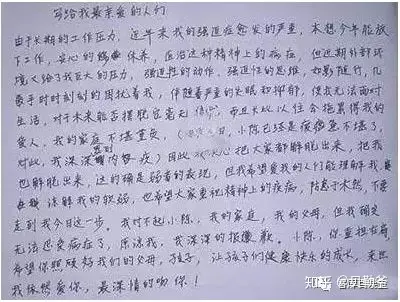 写给我最亲爱的人们
由于长期的工作压力,近年来我的强迫症愈发的严重,本想今年能放
下工作,安心的休养,医治这种精神上的疾病,但近期外部环
境又给予我巨大的压力,强迫性的动作、强迫性的思维,如影随行,几
乎时时刻刻的困扰着我,伴随着严重的失眠和抑郁,使我无法面对
生活,对于未来能否摆脱它毫无信心,而且长此以往会拖累得我的
爱人,我的家庭不堪重负,小陈也已经是疲惫不堪了,
对此,我深深感到内疚)因此决心把大家都解脱出来,把我
也解脱出来,这的确是弱者的表现,但我希望爱我的人们能理解我,
谅解我的软弱,也希望大家重视精神上的疾病,防患于未然,不要
走到我今日这一步。我对不起小陈,我的家庭,我的父母,但我确实
无法忍受病症了,原谅我,我深深的报歉。小陈,你重担在肩,
希望你照顾好我们的父母,孩子,让孩子们健康快乐的成长,来世
我依然爱你,最深情的吻你!
知乎 @贝勒爷